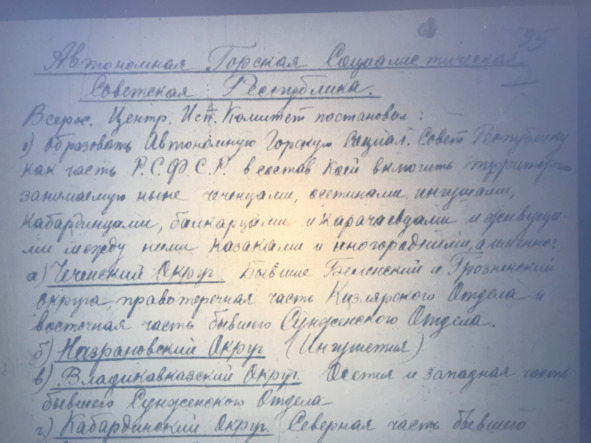 95
Автономная Горская Социалистическая
Советская Республика.
Всерос. Центр. Исп. Комитет постановил:
1) образовать Автономную Горскую Социал. Совет Республику
как часть Р.С.Ф.С.Р. в состав коей включить территорию
занимаемую ныне чеченцами, осетинами, ингушами,
кабардинцами, балкарцами и карачаевцами и
ми между ними казаками и иногородними, а именно:
а) Чеченский Округ. Бывшие и Грозненский
округа, правотеречная часть Кизлярского Отдела и
восточная часть бывшего Сунженского Отдела.
б) Назрановский Округ (Ингушетия)
в) Владикавказский Округ Осетия и западная часть
бывшего Сунженского Отдела
г) Кабардинский Округ. Северная часть бывшего